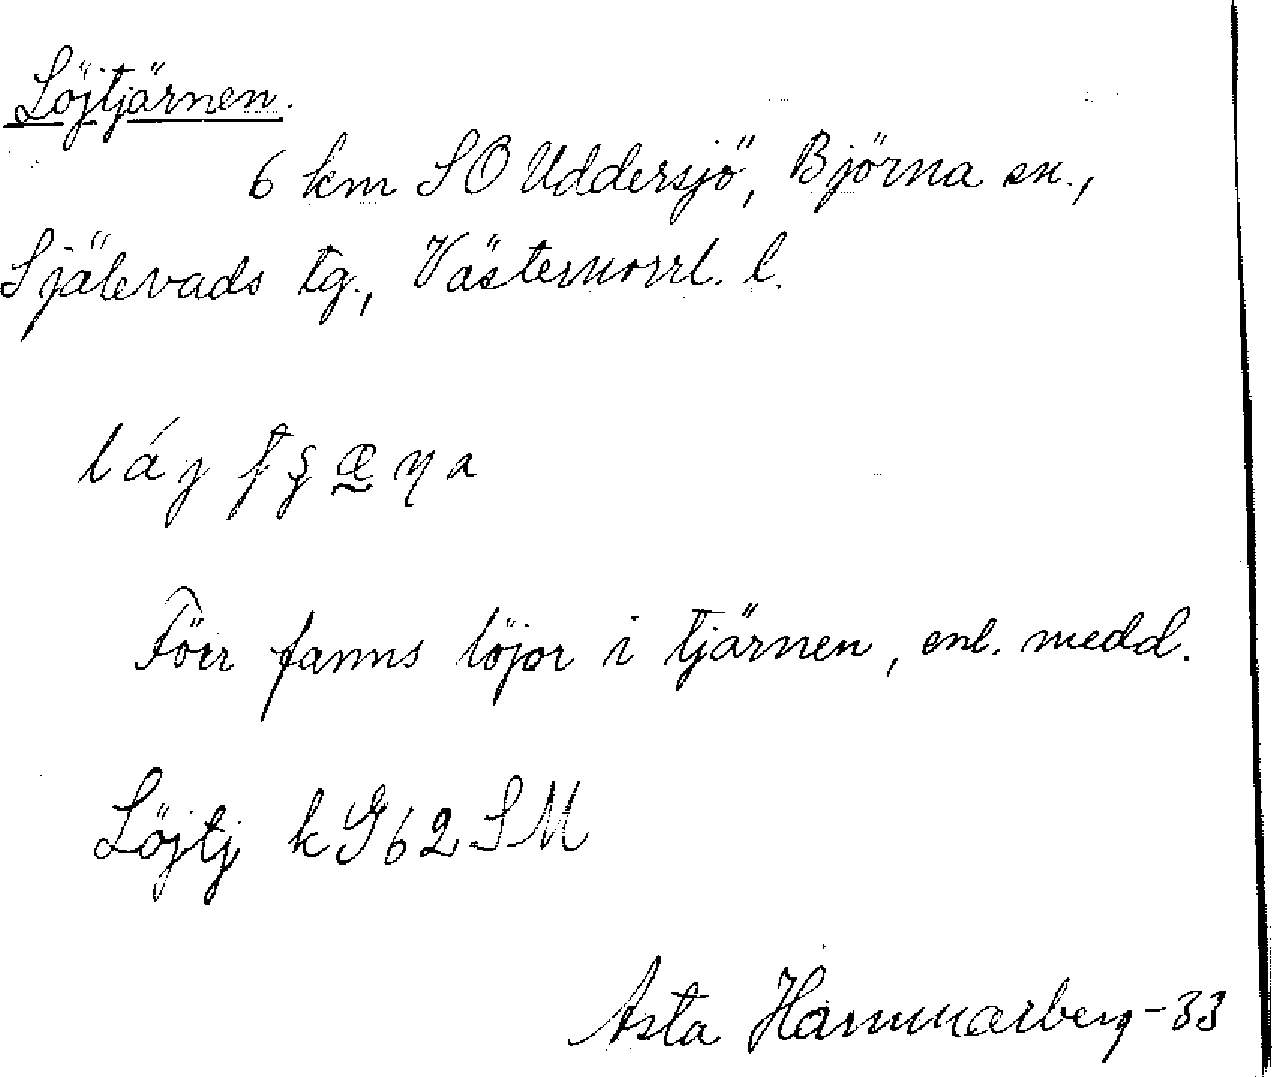 Löjtjärnen.
6 km SO Uddersjö, Björna sn.,
Själevads tg., Västernorrl. l.
Förr fanns löjor i tjärnen, enl. medd.
Löjtj k G62 SM
Asta Hammarberg -33